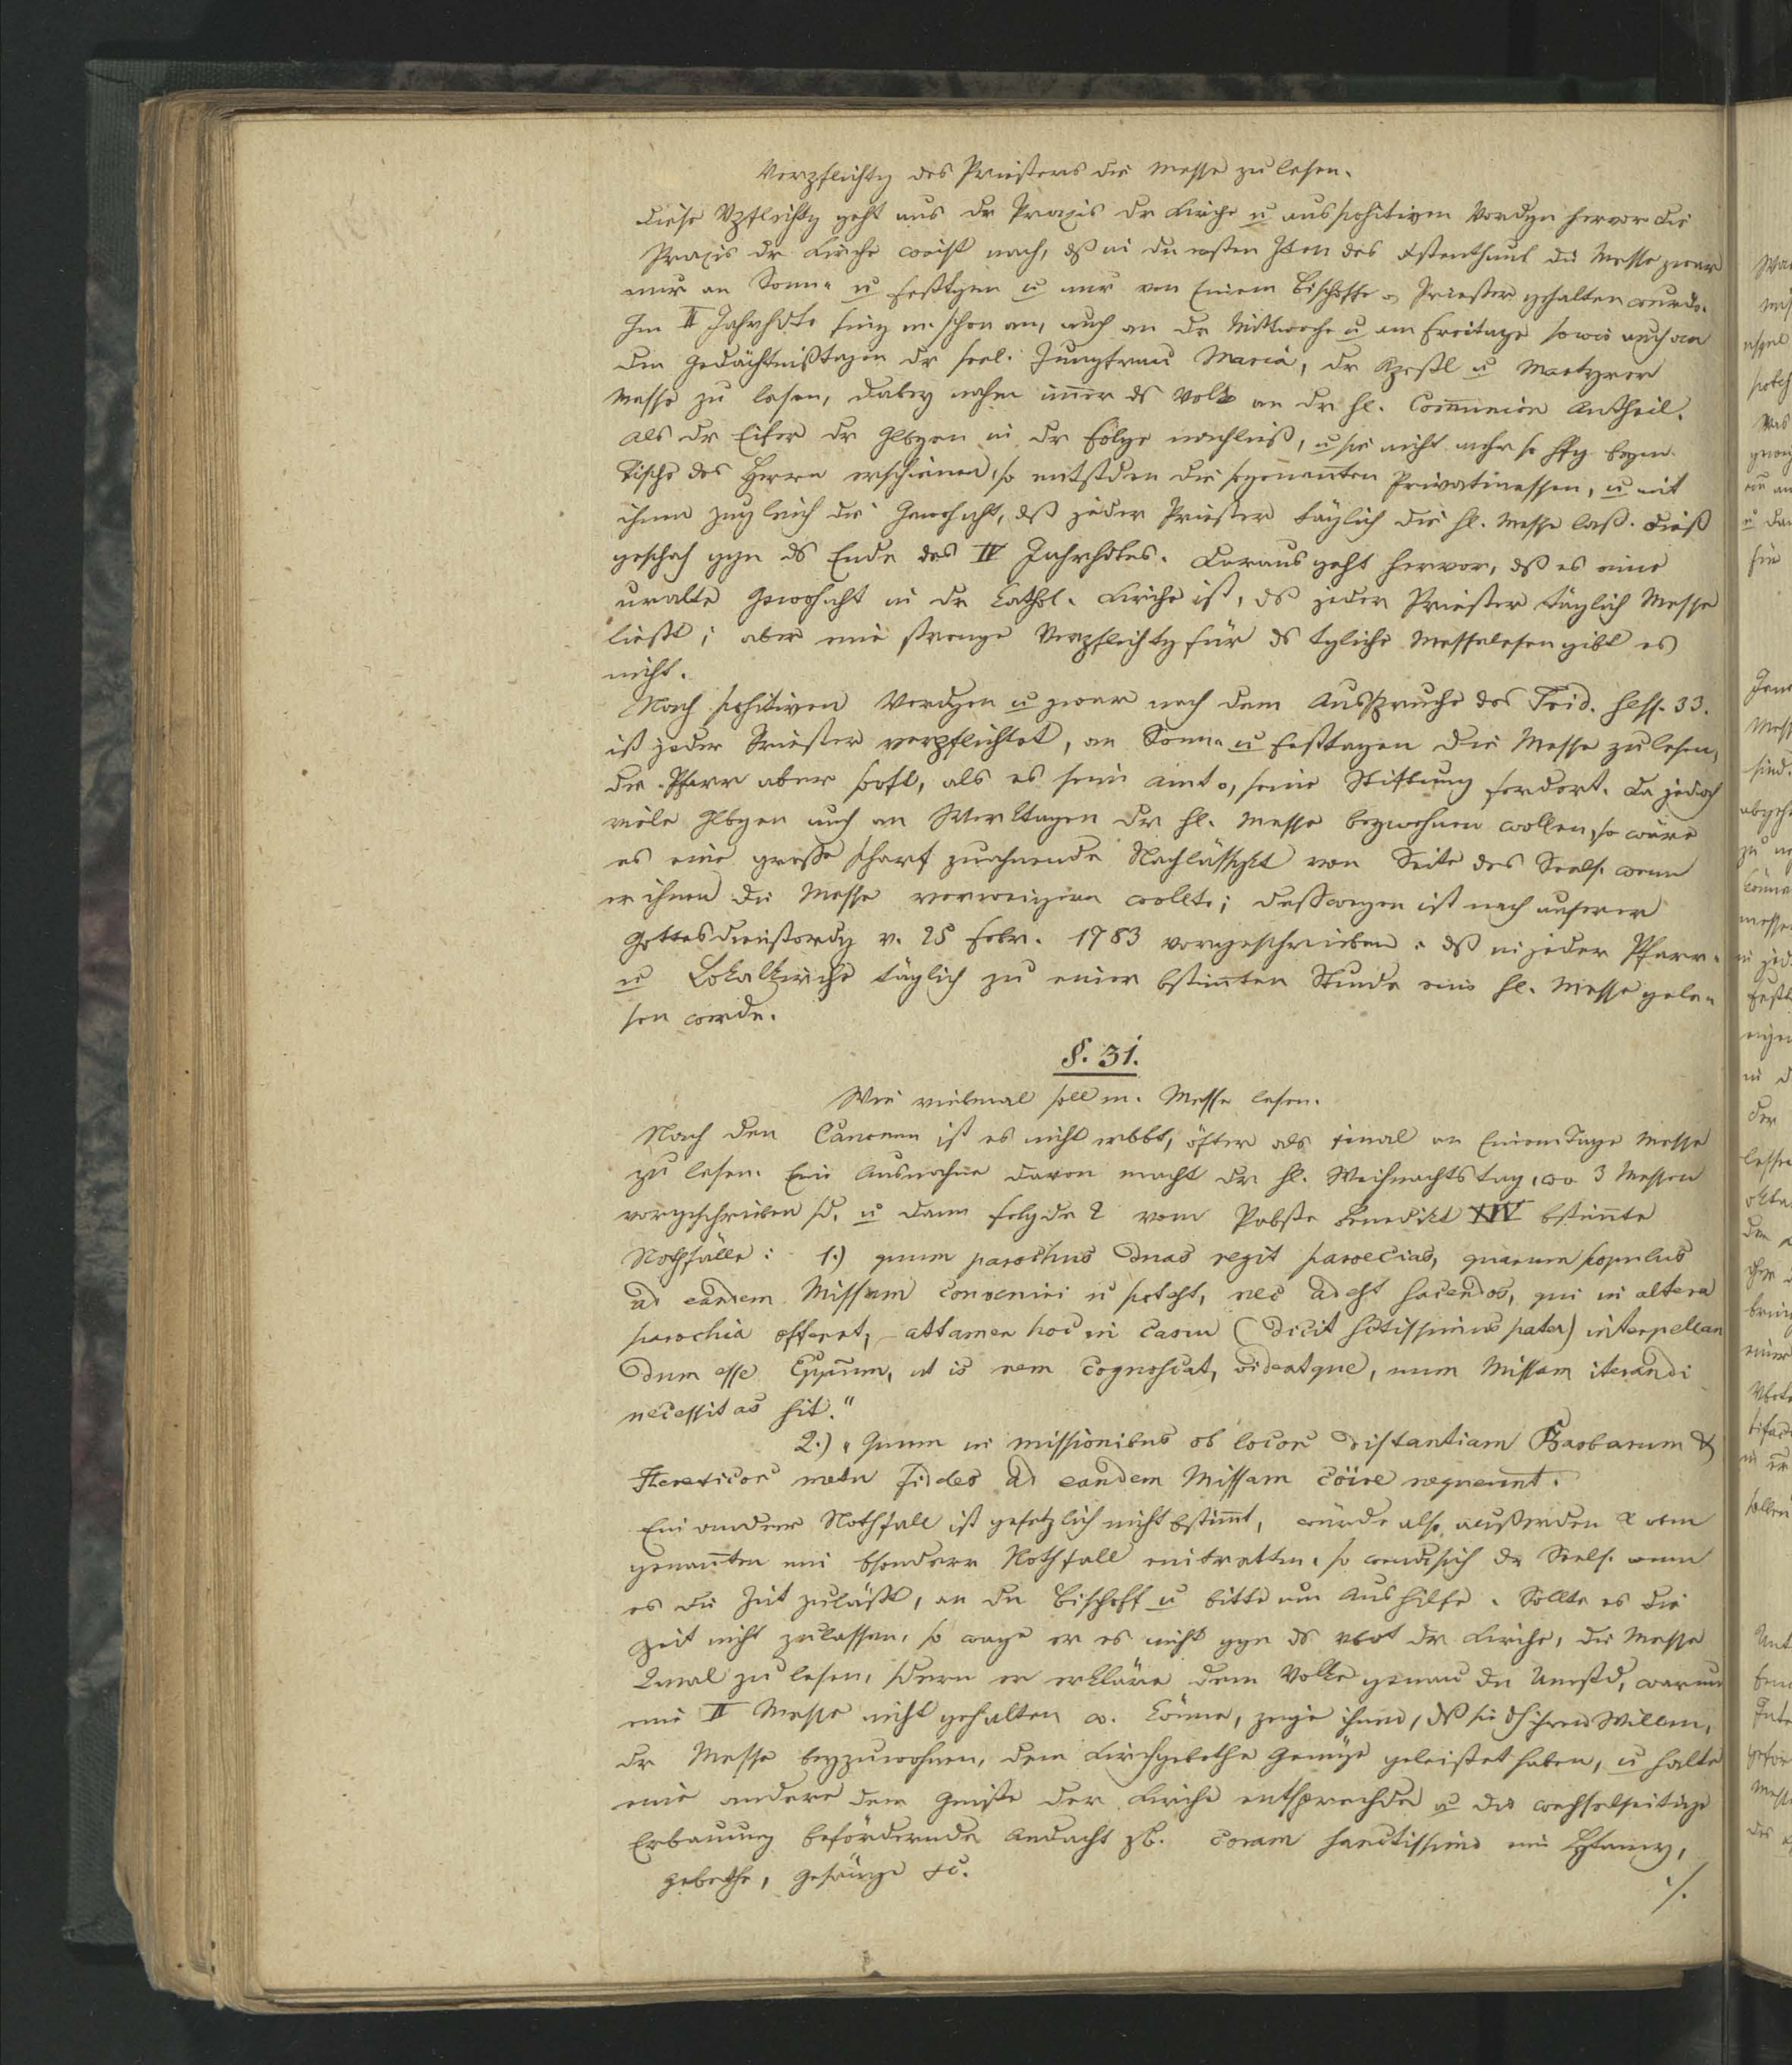 Verpflichtg des Priesters die Messe zu lesen.
Diese Vpflichtg geht aus dr Praxis dr Kirche u aus positiven Vordgn hervor die
Praxis dr Kirche weist nach, dß in den ersten Zten des Xstenthums die Messe zwar
nur an Sonn- u Festtgen u nur von Einem Bischoffe o Priester gehalten wurde.
Im II Jahrhdte fing m schon an, auch an dr Mittwoche u am Freitage sowie auch an
den Gedächtnißtagen dr seel. Jungfrau Maria, dr Apostl u Martyrer
Messe zu lesen, dabey nahm immer ds Volk an dr hl. Communion Antheil.
Als dr Eifer dr Glbgen in dr Folge nachließ, u sie nicht mehr so hfg beym
Tische des Herrn erschienen, so entstden die sogenannten Privatmessen, u mit
ihnen zugleich die Gewohnht, dß jeder Priester täglich die hl. Messe laß. Dieß
geschah ggn ds Ende des IV Jahrhdtes. Daraus geht hervor, dß es eine
uralte Gewohnht in dr Kathol. Kirche ist, ds jeder Priester täglich Messe
ließt; aber eine strenge Verpflichtg für ds tgliche Messelesen gibt es
nicht.
Nach positiven Verdgen u zwar nach dem Ausspruche des Trid. Sess. 33.
ist jeder Priester verpflichtet, an Sonn- u Festtagen die Messe zu lesen,
der Pfarr aber sooft, als es sein Amt o, seine Stiftung fordert. Da jedoch
viele Glbgen auch an Werktagen dr hl. Messe beywohnen wollen, so wäre
es eine große scharf zu ahnende Nachlässgkt von Seite des Seels. wenn
er ihnen die Messe verweigern wollte; deßwegen ist nach unserer
Gottesdienstordg v. 25 Febr. 1783 vorgeschrieben, dß in jeder Pfarr-
u Lokalkirche täglich zu einer bstimmten Stunde eine hl. Messe gele-
sen werde.
§. 31.
Wie vielmal soll m. Messe lesen.
Nach den Canonen ist es nicht erlbt, öfter als 1mal an Einem Tage Messe
zu lesen. Eine Ausnahme davon macht dr hl. Weihnachtstag, wo 3 Messen
vorgeschrieben sd, u dann folgde 2 vom Pabste Benedikt XIV bstimmte
Nothfälle: 1.) quum parochus duas regit paroecias, quarum populus
ad eandem Missam convenire n potest, nec adest sacerdos, qui in altera
parochia offerat, attamen hoc in casu (dicit sctissimus pater) interpellan
dum esse Eppum, ut is rem cognoscat, videatque, num Missam iterandi
necessitas sit."
2.) "Quum in missionibus ob locor distantiam Barbarum &
Hereticor metu fideles ad eandem Missam coire nequeunt.
Ein anderer Nothfall ist gesetzlich nicht bstimmt, würde also außer den 2 oben
genannten ein bsonderer Nothfall eintretten, so wende sich dr Seels. wenn
es die Zeit zuläßt, an den Bischoff u bitte um Aushilfe. Sollte es die
Zeit nicht zulassen, so wage er es nicht ggn ds Vbot dr Kirche, die Messe
2mal zu lesen, sdern er erkläre dem Volke genau den Umstd, warum
eine II Messe nicht gehalten w. könne, zeige ihnen, dß sie dh ihren Willen,
dr Messe beyzuwohnen, dem Kirchgebothe Genüge geleistet haben, u halte
eine andere dem Geiste der Kirche entsprechde u die wechselseitige
Erbauung befördernde Andacht zb. coram sanctissimo eine Lytaney,
Gebethe, Gesänge &c.
./.